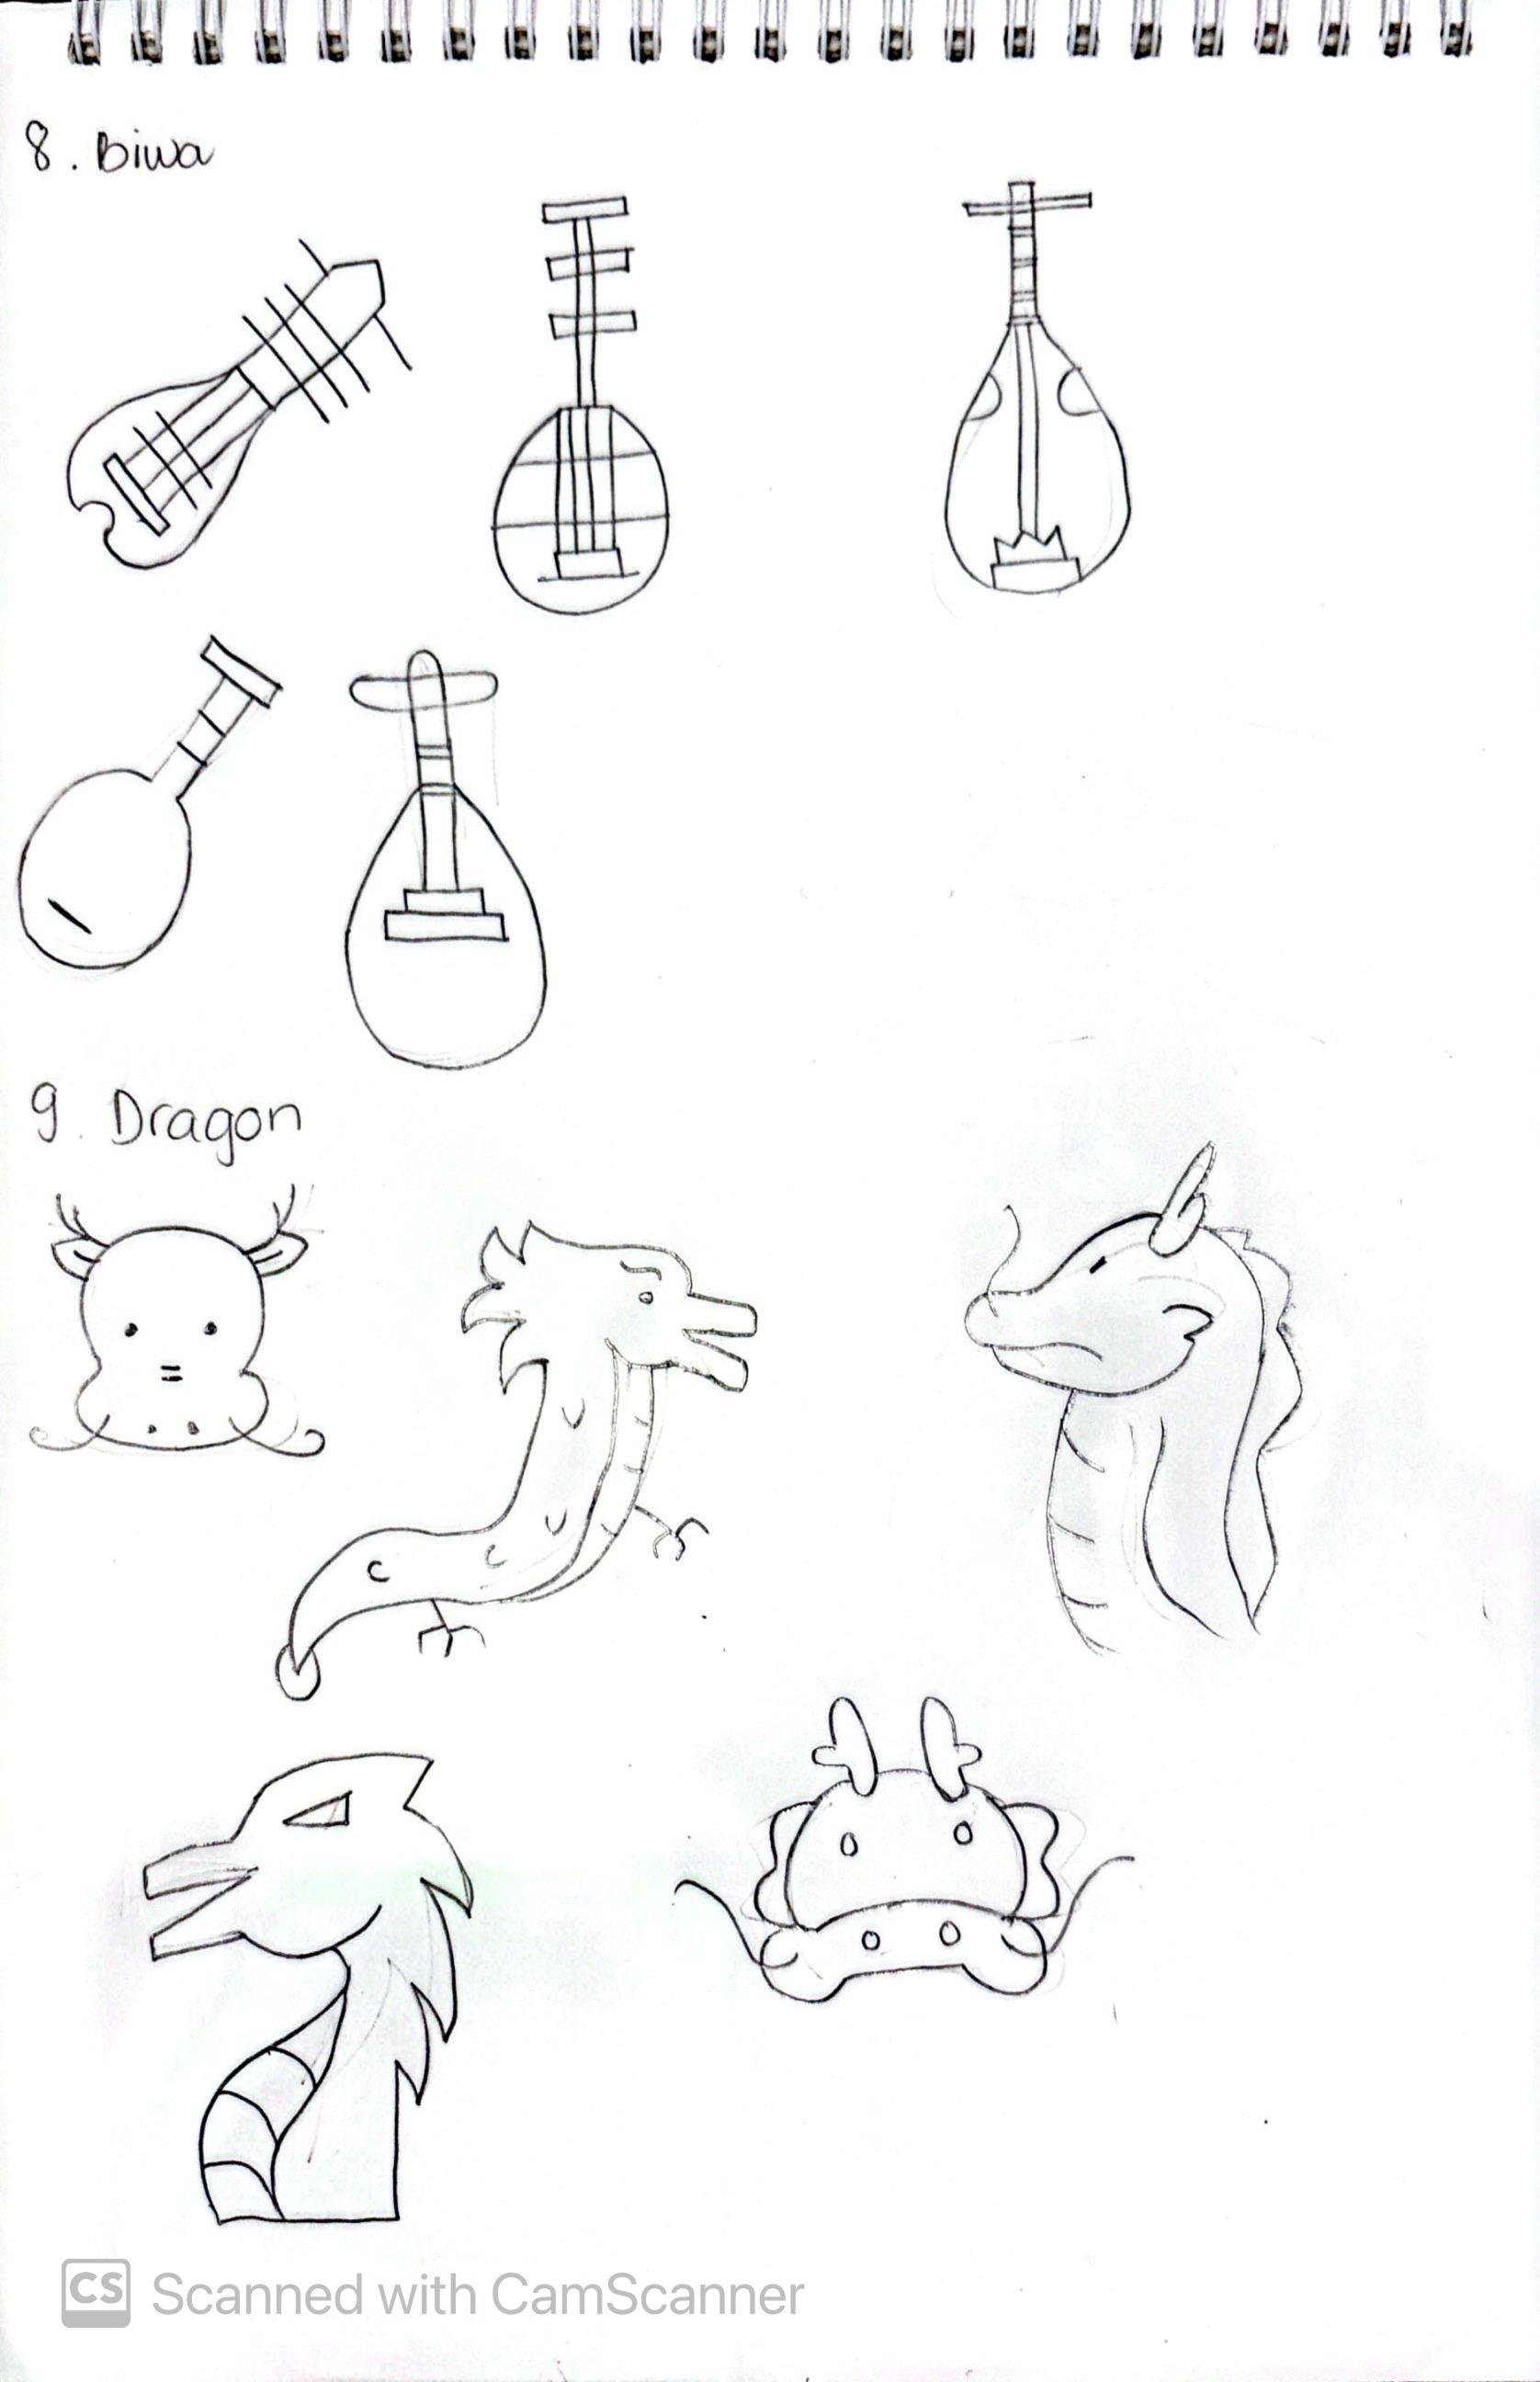 8. Biwa
9. Dragon
CS Scanned with CamScanner